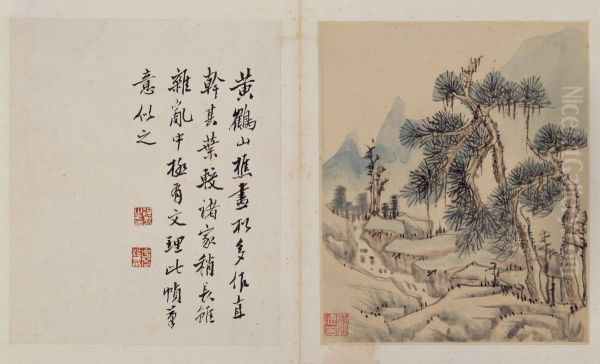 黄鶴山樵畫松多作直
幹其葉較諸家稍長雖
雜亂中極有文理此幀筆
意似之